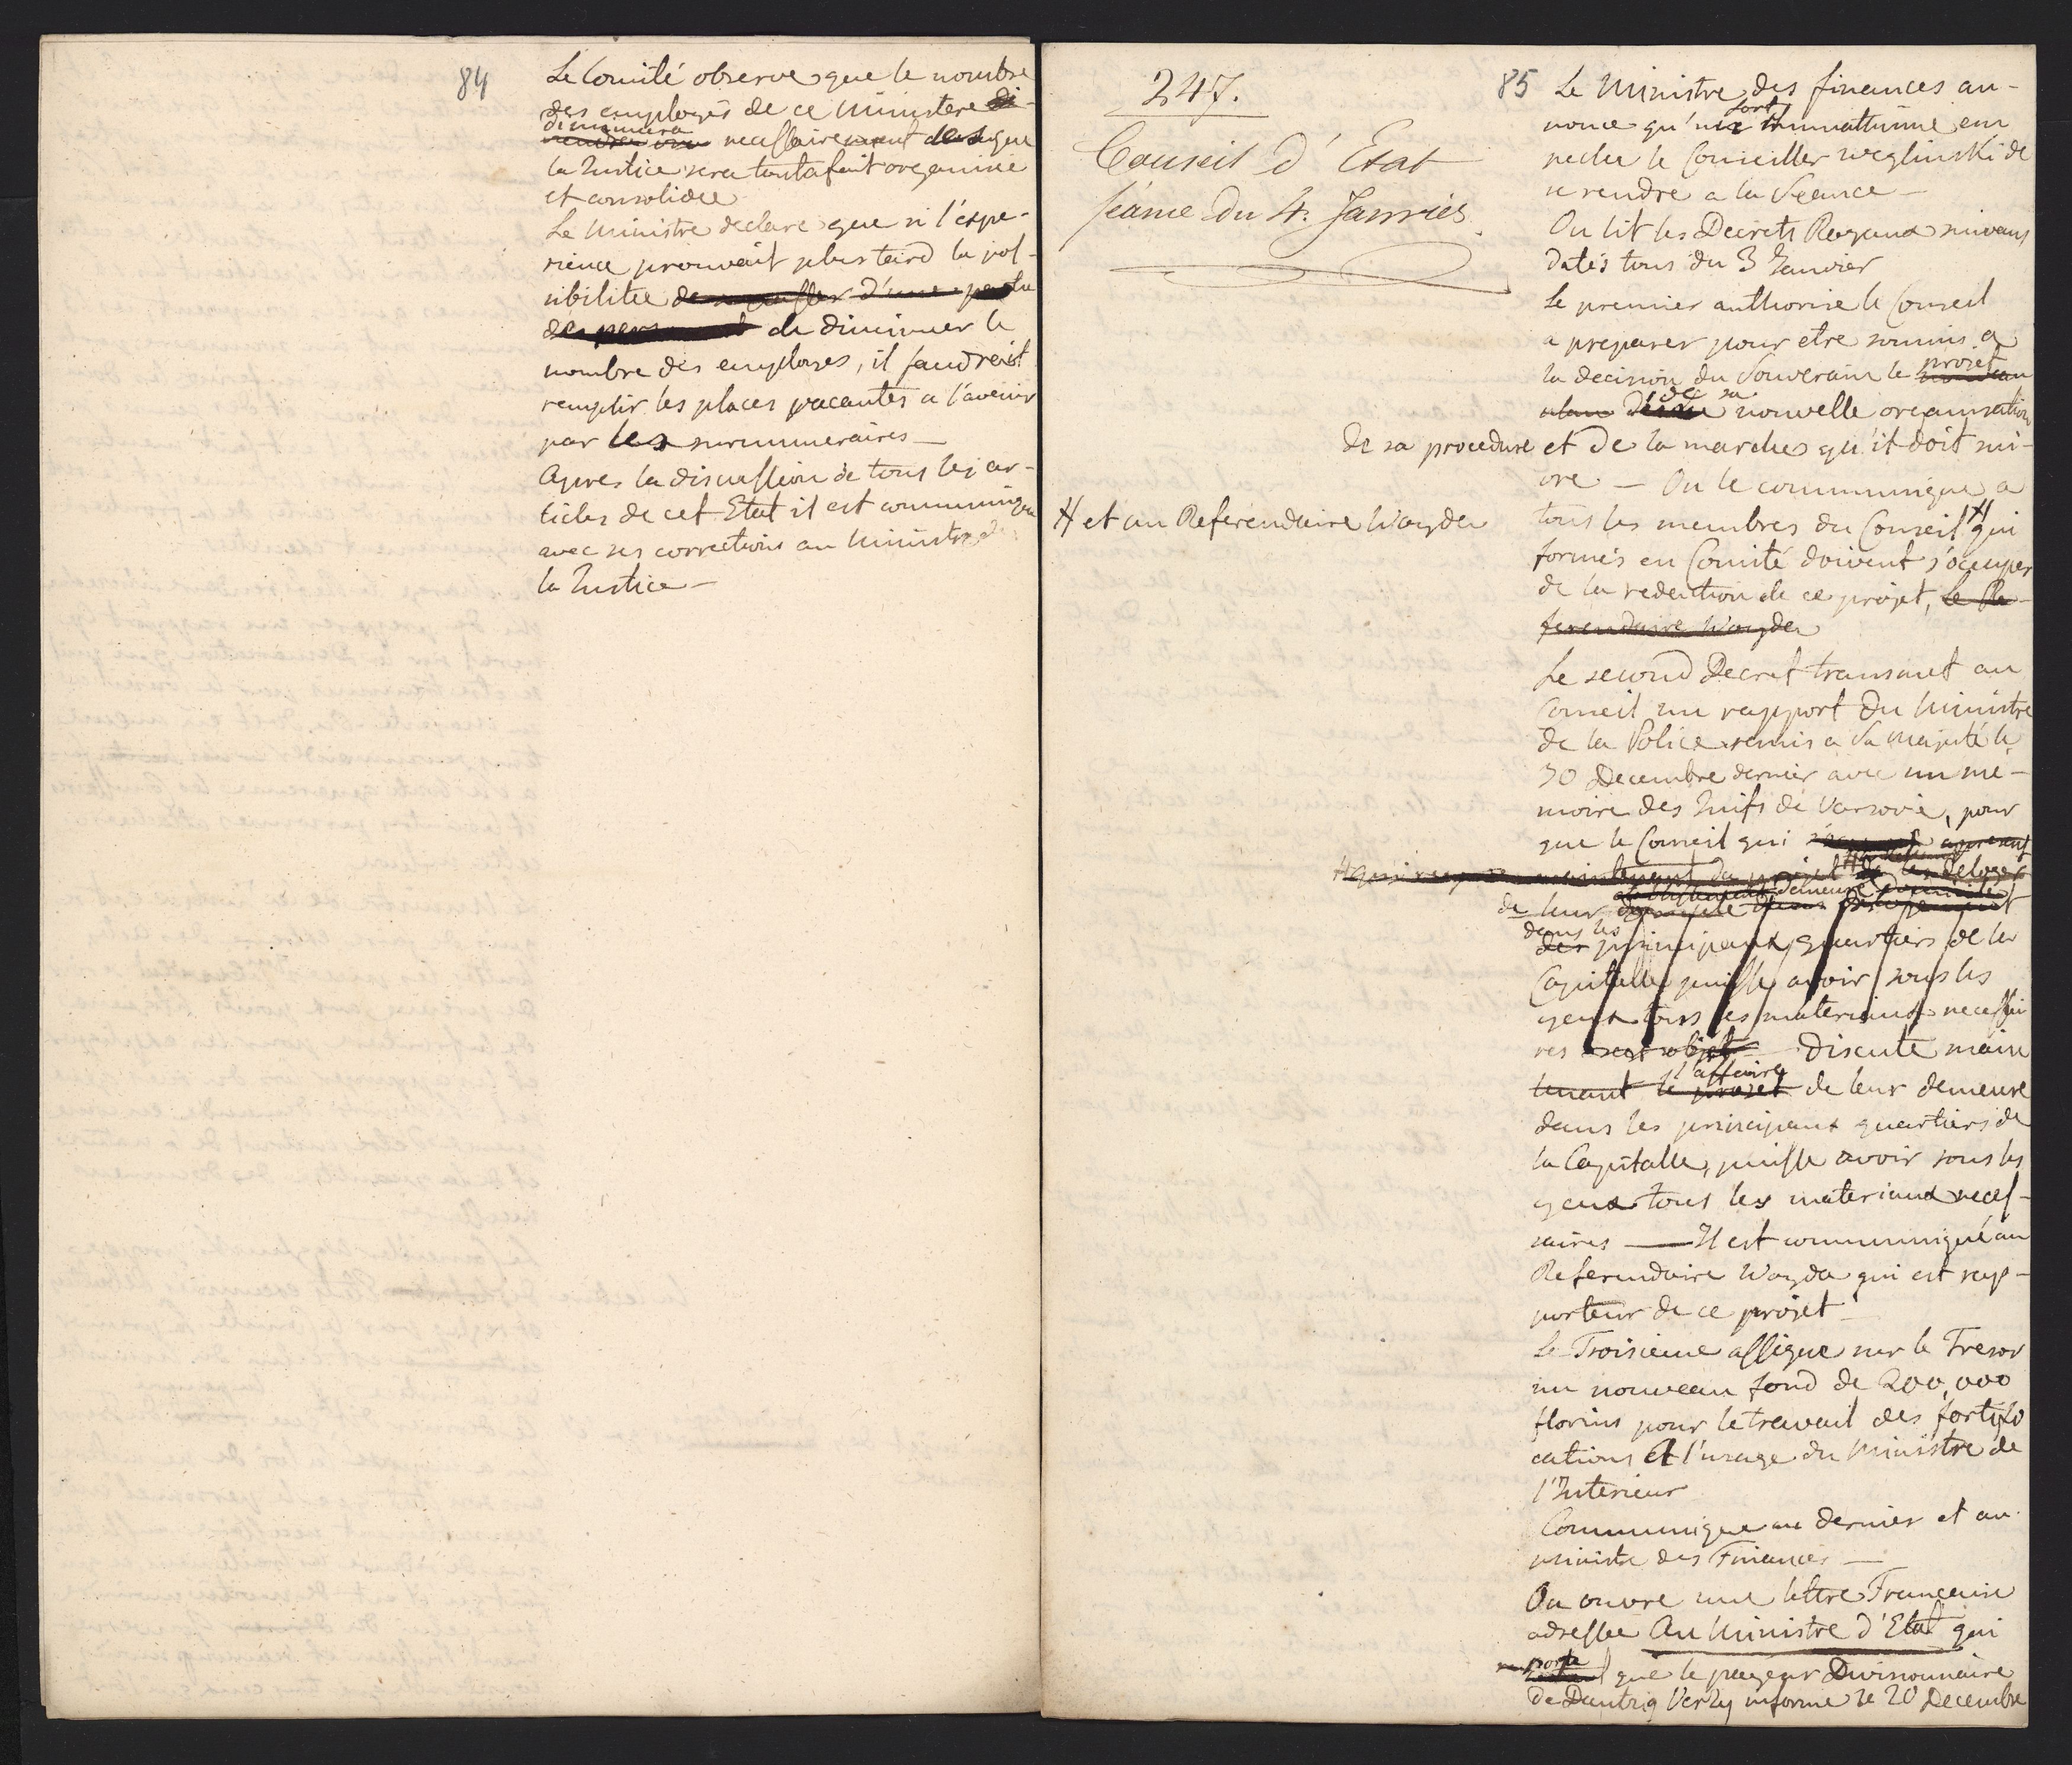 84
Le Comité observe que le nombre
des employés de ce Ministere di-
diminuera
necessairement des que
la Justice sera toutafait organisée
et consolidée
Le Ministre declare que si l'expe-
rience prouvait plus tard la pos-
sibilitée de d'une partie
des de diminuer le
nombre des employes, il faudroit
remplir les places vacantes a l'avenir
par les surnumeraires —
Apres la discussion de tous les ar-
ticles de cet Etat il est communiqué
avec ses corrections au Ministre de
la Justice —
247.
Conseil d'Etat
Séance du 4. Janvier.
85
Le Ministre des finances an-
nonce qu'un fort
peche le Conseiller Węgliński de
se rendre a la Séance —
On lit les Decrets Royaux suivans
datés tous du 3 Janvier
Le premier authorise le Conseil
a preparer pour etre soumis a
la decision du Souverain le nouveau projet
plan de sa nouvelle organisation
de sa procedure et de la marche qu'il doit sui-
vre — On le communique a
tous les membres du Conseil # qui
# et au Referendaire Wayda
formés en Comité doivent s'occuper
de la redaction de ce projet, le Re-
ferendaire Wayda
Le second Decret transmet au
Conseil un rapport du Ministre
de la Police remis a Sa Majesté le
30 Decembre dernier avec un me-
moire des Juifs de Varsovie, pour
que le Conseil qui apresent
# qui maintenant du projet de les deloger
demeure
de leur
dans les
des principaux quartiers de la
Capitalle puisse avoir sous les
yeux tous les materiaux necessai
res a cet objet — Discute main
tenant le projet l'affaire de leur demeure
dans les principaux quartiers de
la Capitalle, puisse avoir sous les
yeux tous les materiaux neces-
saires — Il est communiqué au
Referendaire Wayda qui est rap-
porteur de ce projet —
Le Troisieme assigne sur le Tresor
un nouveau fond de 200,000
florins pour le travail des fortifi
cations et l'usage du Ministre de
l'Interieur
Communique au dernier et au
ministre des Finances —
On ouvre une lettre Francaise
adressée Au Ministre d'Etat qui
porte
que le payeur Divisionnaire
de Dantzig Verzy informe le 20 Decembre